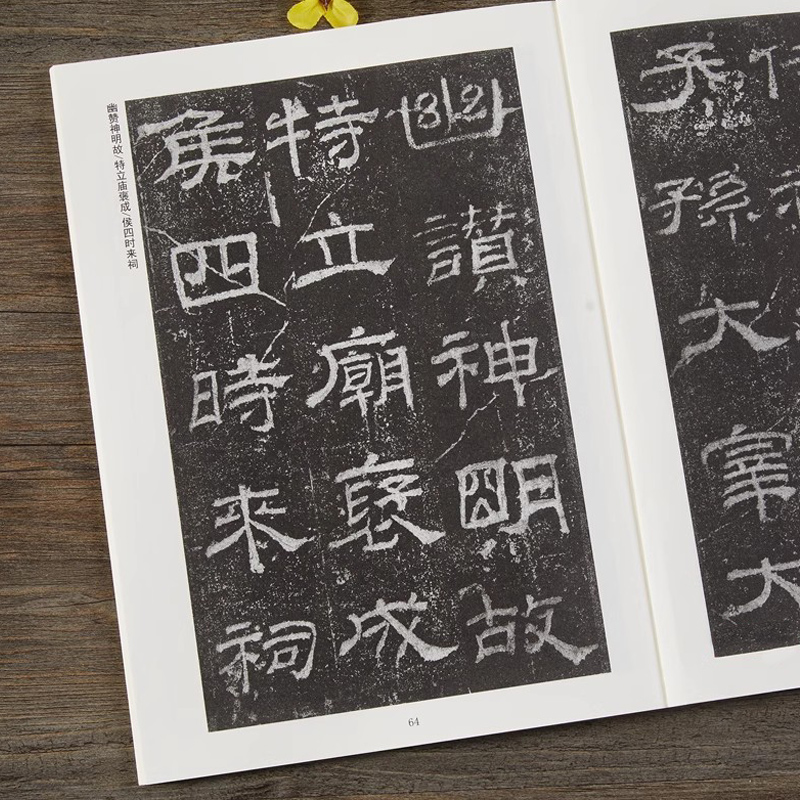 幽讚神明故
特立廟褒成
侯四時來祠
幽赞神明故/特立庙褒成/侯四时来祠
64
子孫大宰大